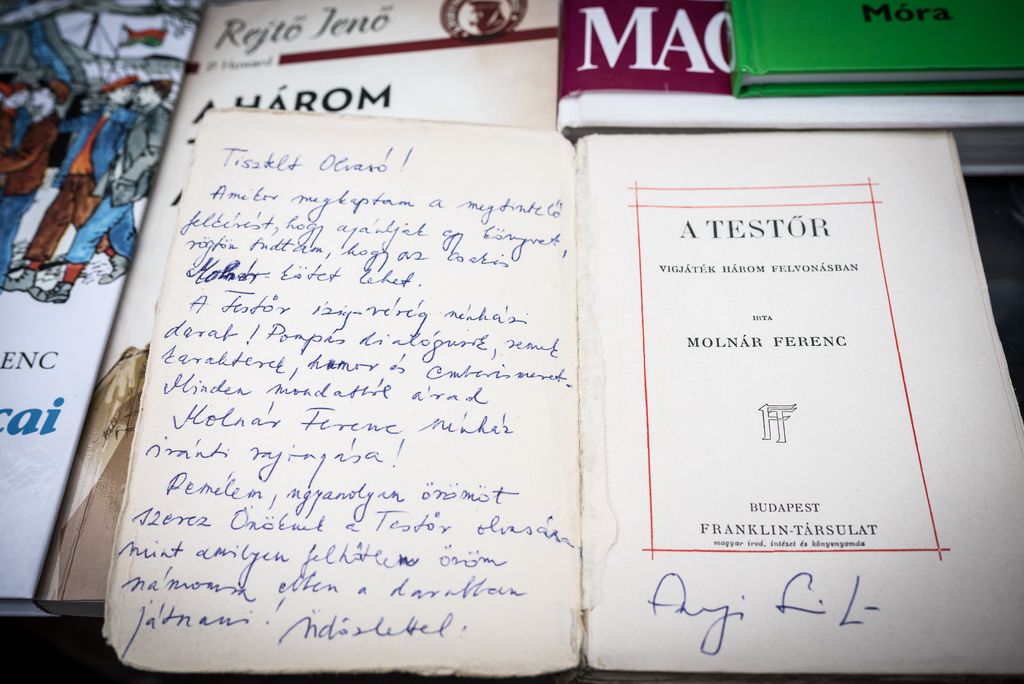 Rejtő Jenő
P. Howard
A HÁROM
MAG
Móra
ENC
cai
Tisztelt Olvasó!
Amikor megkaptam a megtisztelő
felkérést, hogy ajánljak egy könyvet,
rögtön tudtam, hogy az csakis
Molnár kötet lehet.
A Testőr ízig-vérig színházi
darab! Pompás dialógusok, remek
karakterek, humor és emberismeret.
Minden mondatból árad
Molnár Ferenc színház
iránti rajongása!
Remélem, ugyanolyan örömöt
szerez Önöknek a Testőr olvasása,
mint amilyen felhőtlen öröm
számomra ebben a darabban
játszani! Üdvözlettel:
A TESTŐR
VIGJÁTÉK HÁROM FELVONÁSBAN
IRTA
MOLNÁR FERENC
FT
BUDAPEST
FRANKLIN-TÁRSULAT
magyar irod. intézet és könyvnyomda